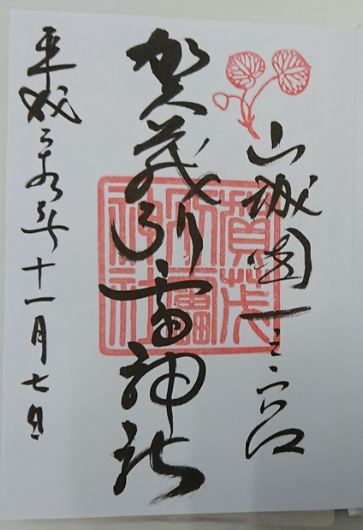 山城國一之宮
賀茂別雷神社
平成二十九年十一月七日
賀茂別雷神社